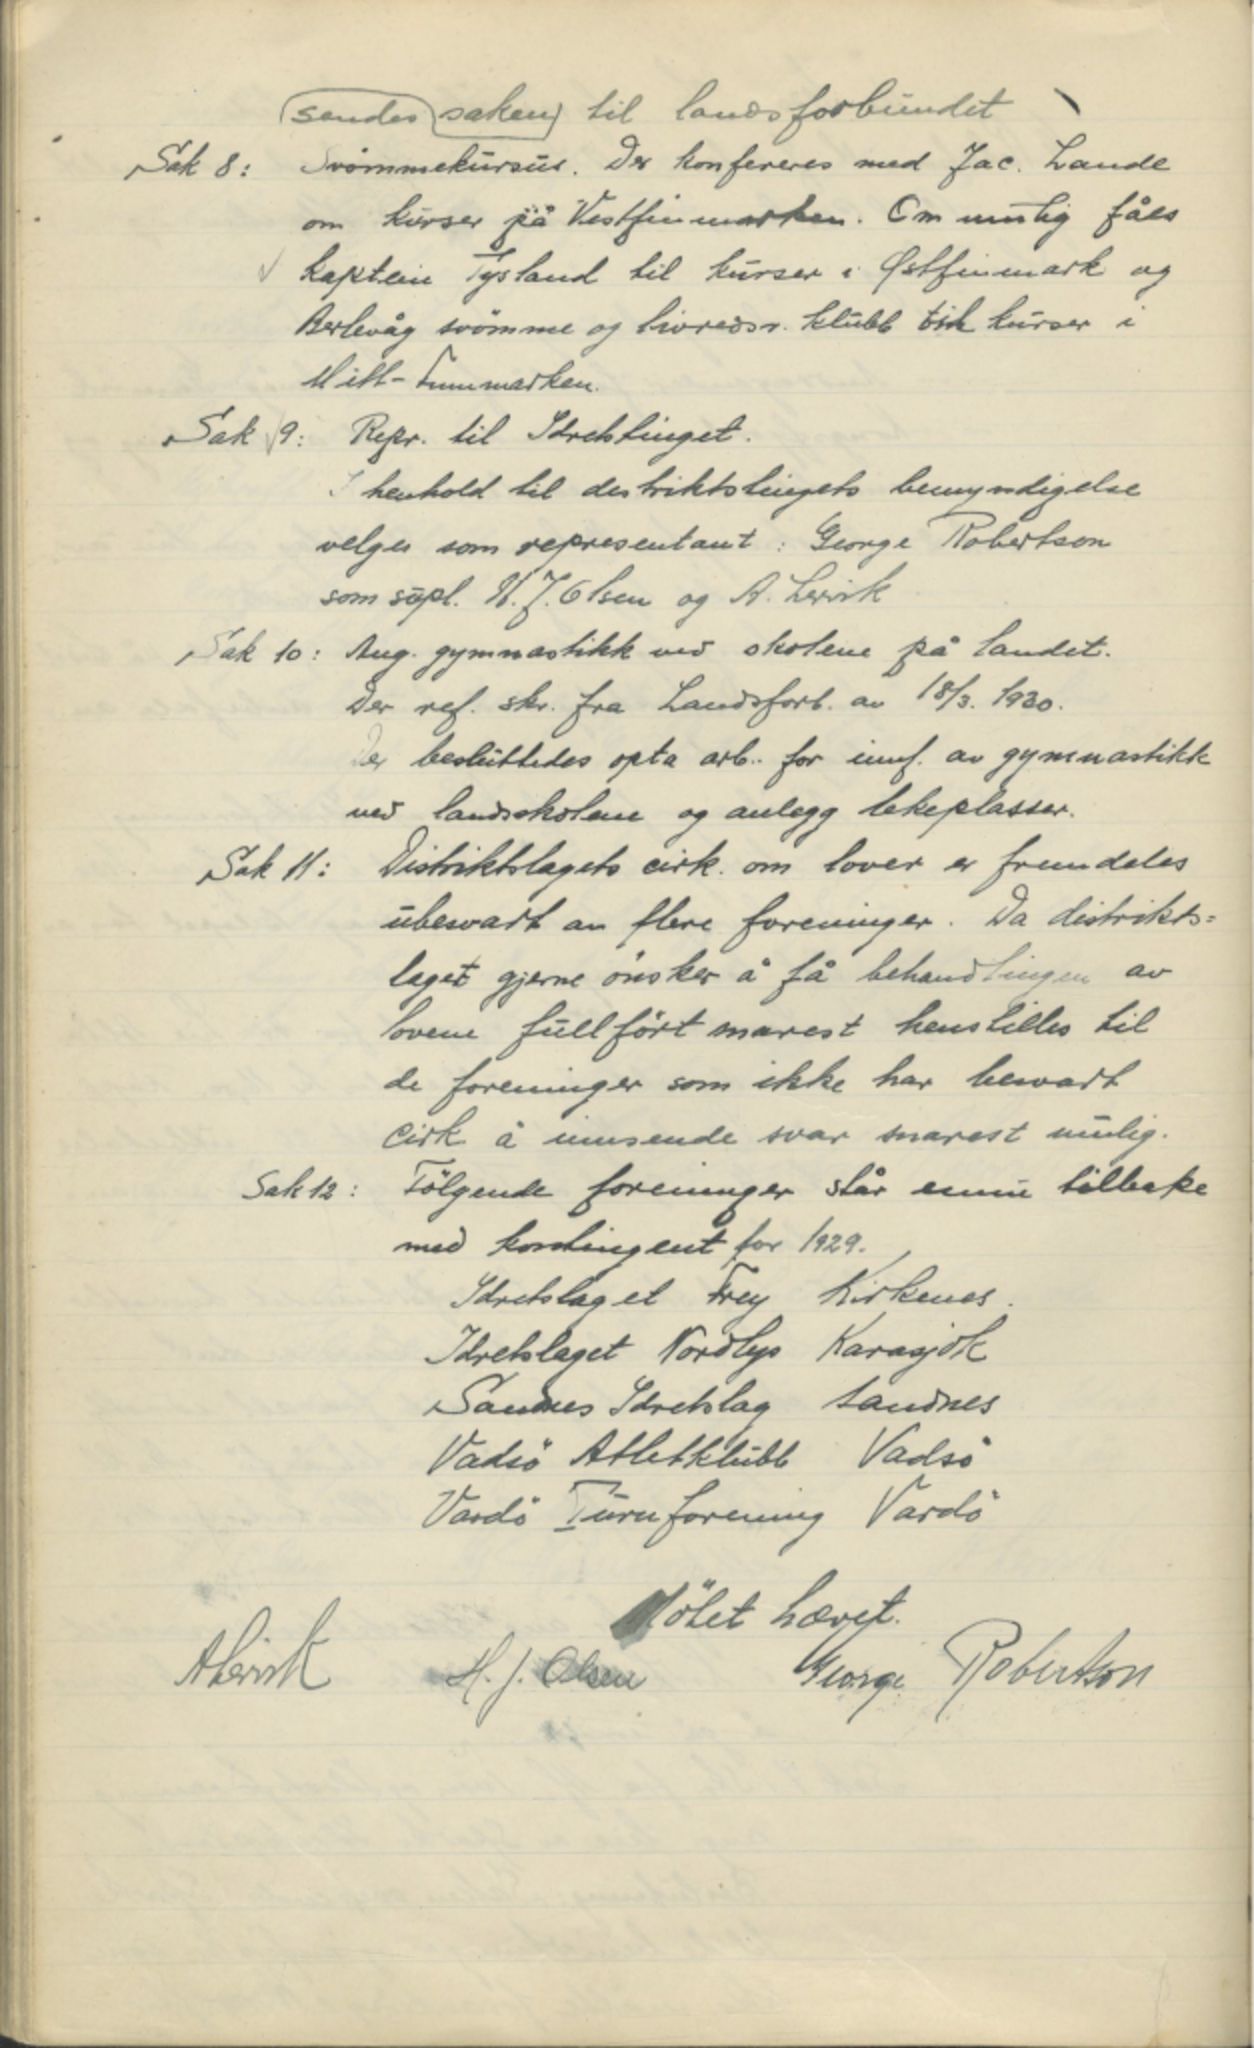 sendes saken til landsforbundet
Sak 8: Svömmekursus. Der konfereres med Jac. Lande
om kurser på Vestfinmarken. Om mulig fåes
kaptein Tysland til kurser i Østfinmark og
Berlevåg svömme og livredsn. klubb til kurser i
Mitt-Finnmarken.
Sak 9: Repr. til Idretstinget.
I henhold til destriktstingets bemyndigelse
velges som representant: George Robertson
som supl. H. J. Olsen og A. Lervik
Sak 10: Ang. gymnastikk ved skolene på landet.
Der ref. skr. fra Landsforb. av 18/3. 1930.
Der besluttedes opta arb. for innf. av gymnastikk
ved landsskolene og anlegg lekeplasser.
Sak 11: Distriktslagets cirk. om lover er fremdeles
ubesvart av flere foreninger. Da distrikts=
laget gjerne önsker å få behandlingen av
lovene fullfört snarest henstilles til
de foreninger som ikke har besvart
cirk å innsende svar snarest mulig.
Sak 12: Fölgende foreninger står ennu tilbake
med kontingent for 1929.
Idretslaget Frey Kirkenes.
Idretslaget Nordlys Karasjok
Sandnes Idretslag Sandnes
Vadsö Atletklubb Vadsö
Vardö Turnforening Vardö
Mötet hævet.
A Lervik H. J. Olsen George Robertson